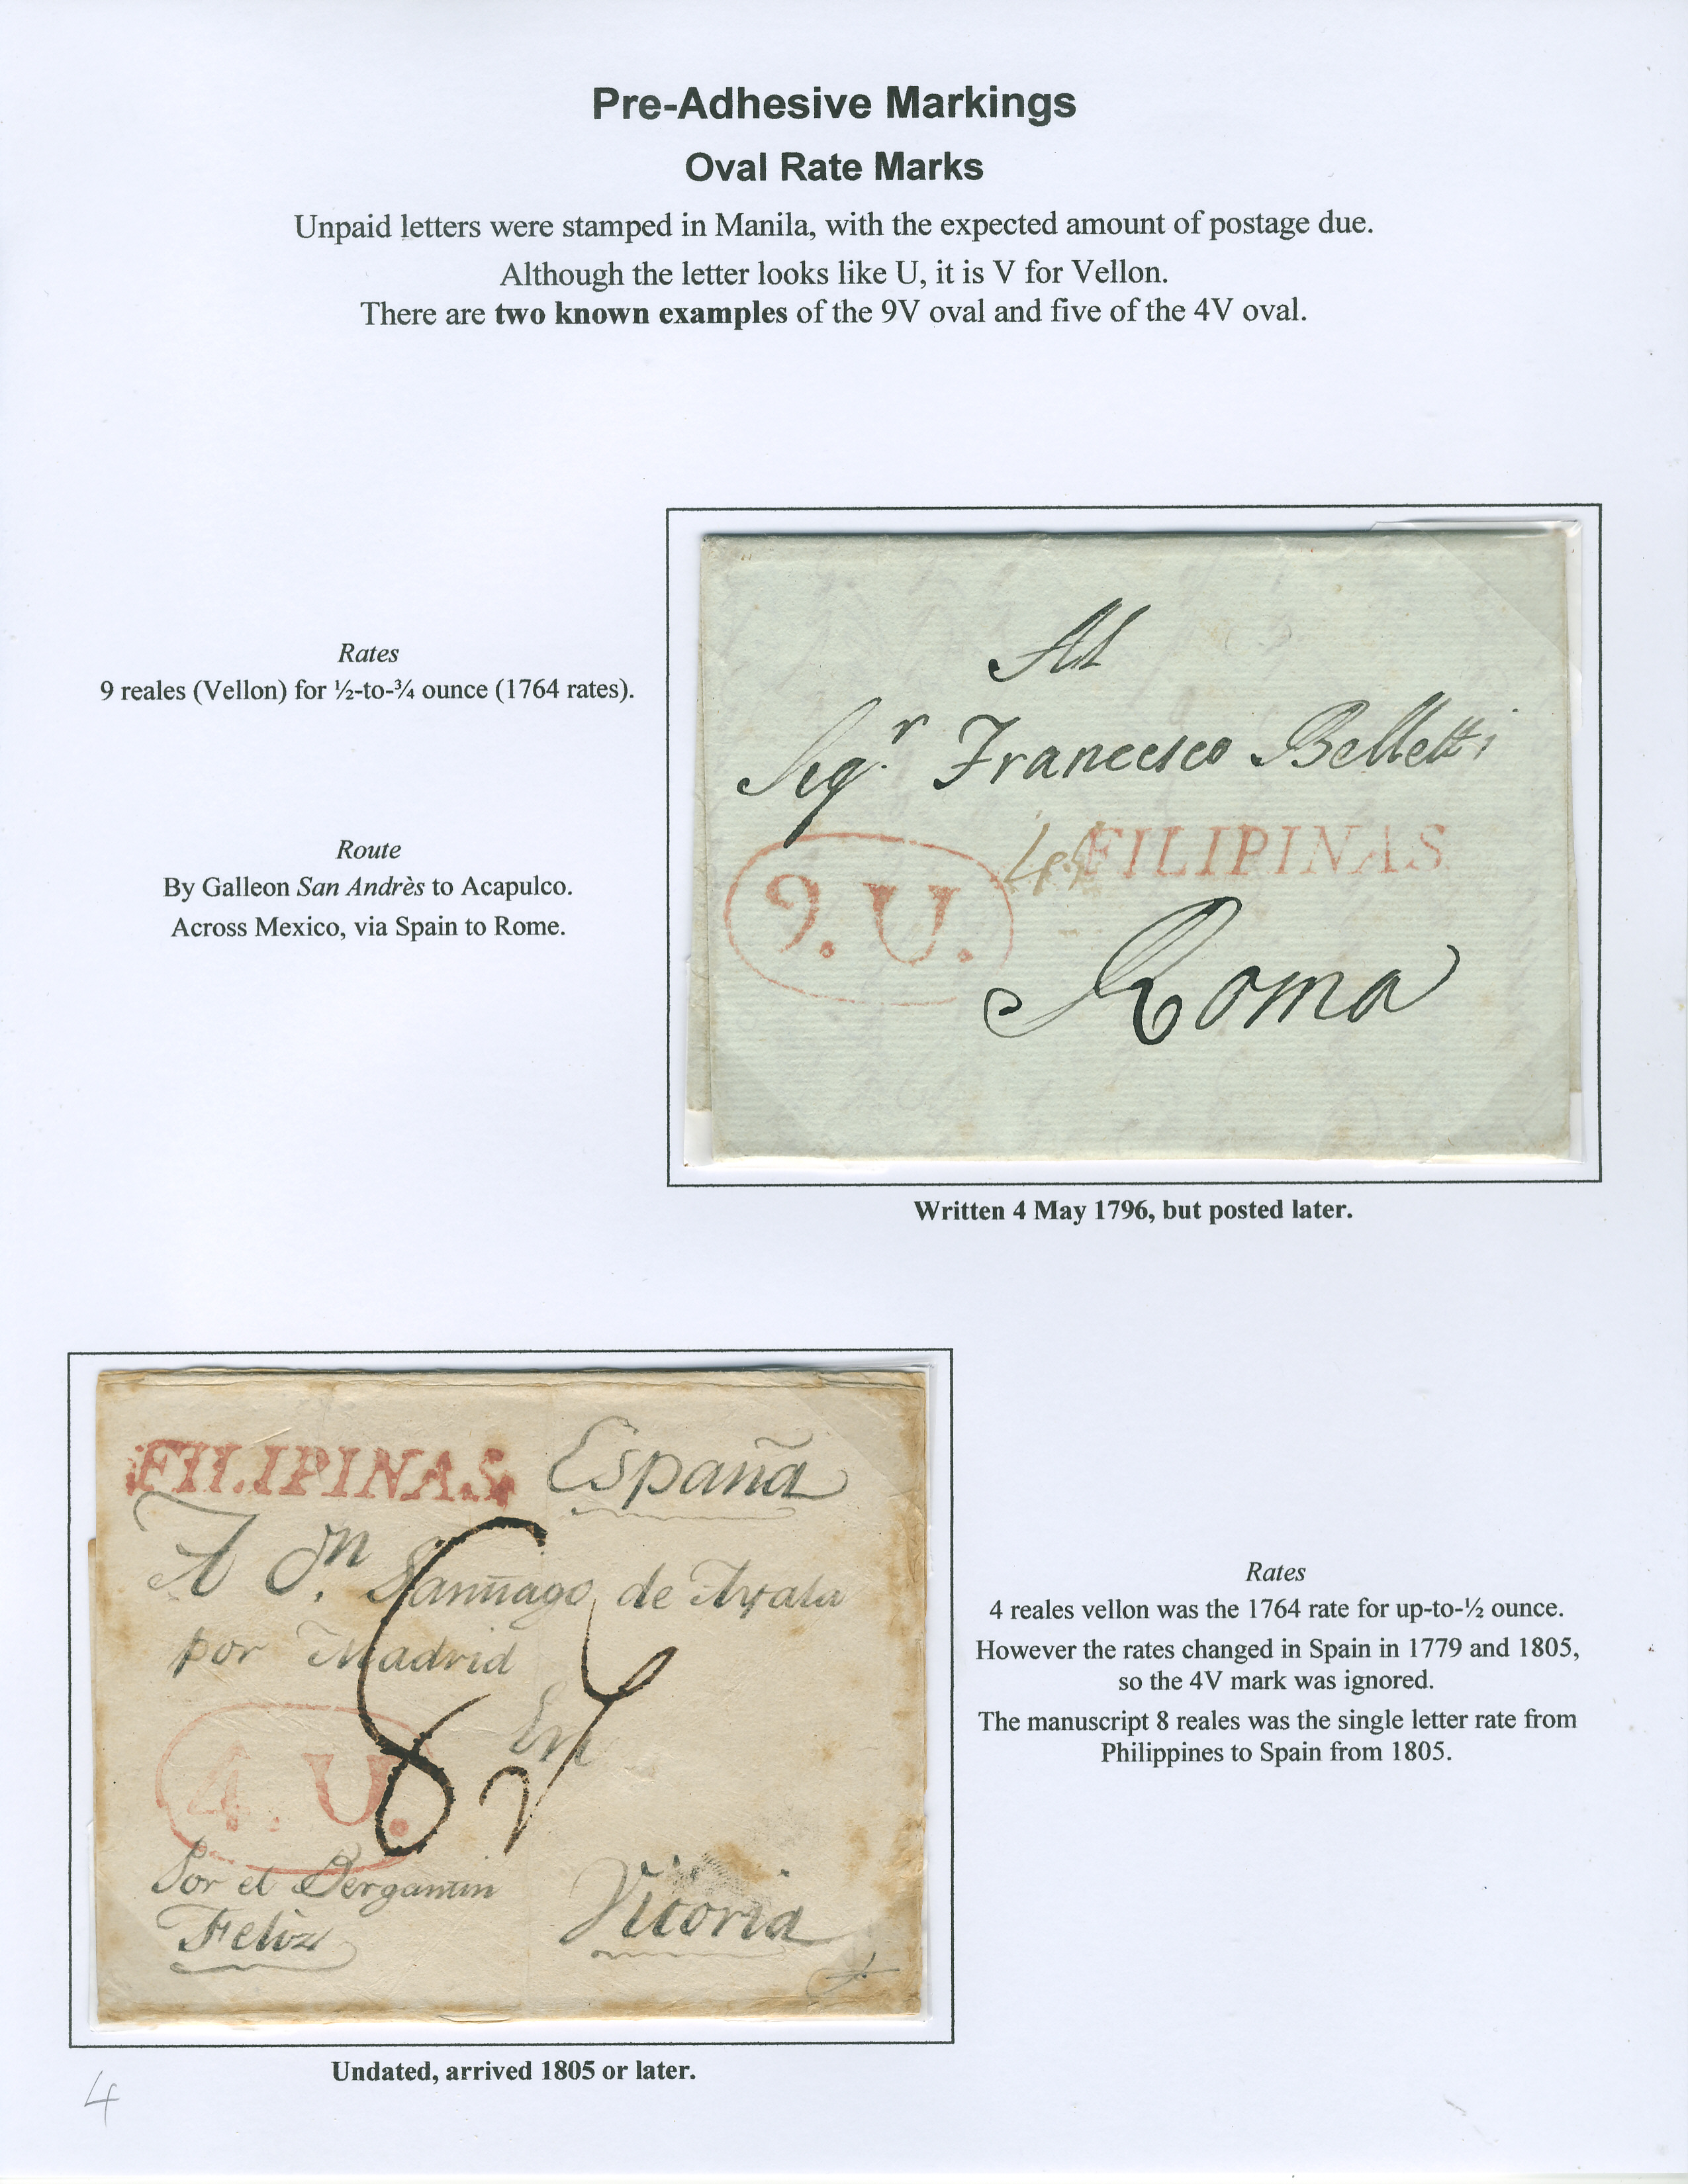 Pre-Adhesive Markings
Oval Rate Marks
Unpaid letters were stamped in Manila, with the expected amount of postage due.
Although the letter looks like U, it is V for Vellon.
There are two known examples of the 9V oval and five of the 4V oval.
Rates
9 reales (Vellon) for ½-to-¾ ounce (1764 rates).
Route
By Galleon San Andrès to Acapulco.
Across Mexico, via Spain to Rome.
Al
Sigr. Francesco Belletti
FILIPINAS
9. U.
Roma
Written 4 May 1796, but posted later.
FILIPINAS España
A Dn. Santiago de Ayala
por Madrid
En
4. U.
8
Por el Bergantin
Feliz
Vitoria
Undated, arrived 1805 or later.
Rates
4 reales vellon was the 1764 rate for up-to-½ ounce.
However the rates changed in Spain in 1779 and 1805,
so the 4V mark was ignored.
The manuscript 8 reales was the single letter rate from
Philippines to Spain from 1805.
4